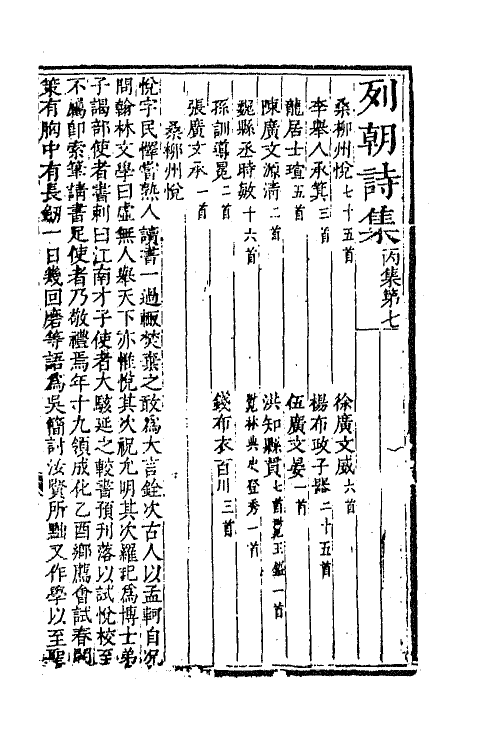 列朝詩集 丙集第七
桑柳州悅 七十五首 徐廣文威 六首
李舉人承箕 三首 楊布政子器 二十五首
龍居士瑄 五首 伍廣文晏 一首
陳廣文源清 二首 洪知縣貫 七首 王 一首
魏縣丞時敏 十六首 林典史登秀 一首
孫訓導冕 二首 錢布衣百川 三首
張廣文承 一首
桑柳州悅
悅字民懌常熟人讀書一過輒焚棄之敢爲大言銓次古人以孟軻自況
問翰林文學曰虛無人舉天下亦惟悅其次祝允明其次羅玘爲博士弟
子謁部使者書刺曰江南才子使者大駭延之較書預刋落以試悅校至
不屬卽索筆請書足使者乃敬禮焉年十九領成化乙酉鄉薦會試春闈
策有胸中有長劒一日幾回磨等語爲吳簡討汝賢所黜又作學以至聖